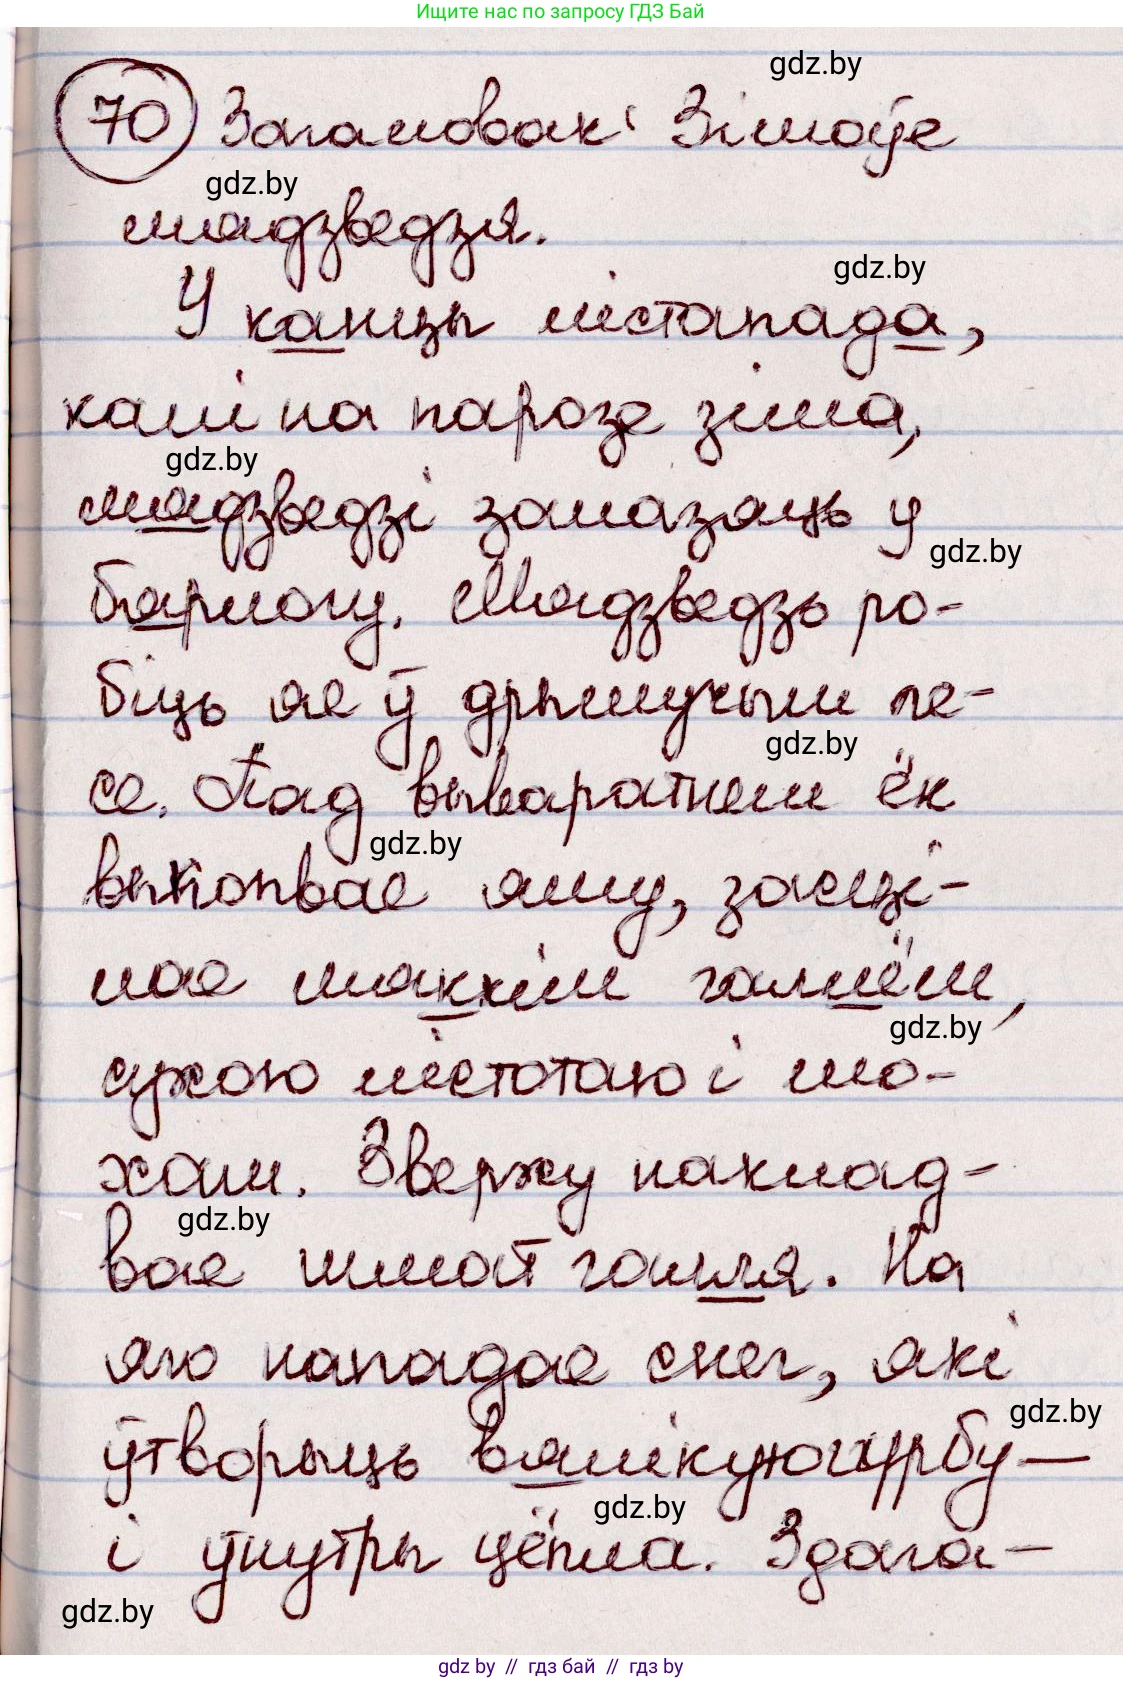 Ищите нас по запросу ГДЗ Бай
gdz.by
70 Загаловак: Зімоўе
gdz.by
мядзведзя.
gdz.by
У канцы лістапада,
калі на парозе зіма,
gdz.by
мядзведзі залазяць у
gdz.by
бярлогу. Мядзведзь ро-
біць яе ў дрымучым ле-
gdz.by
се. Пад вываратнем ён
gdz.by
выкопвае яму, засці-
лае мяккім галлём,
gdz.by
сухою лістотаю і мо-
хам. Зверху накład-
gdz.by
вае шмат галля. На
яго нападае снег, які
gdz.by
ўтворыць вялікую гурбу —
gdz.by
і ўнутры цёпла. Здага-
gdz.by
gdz by // гдз бай // gdz by